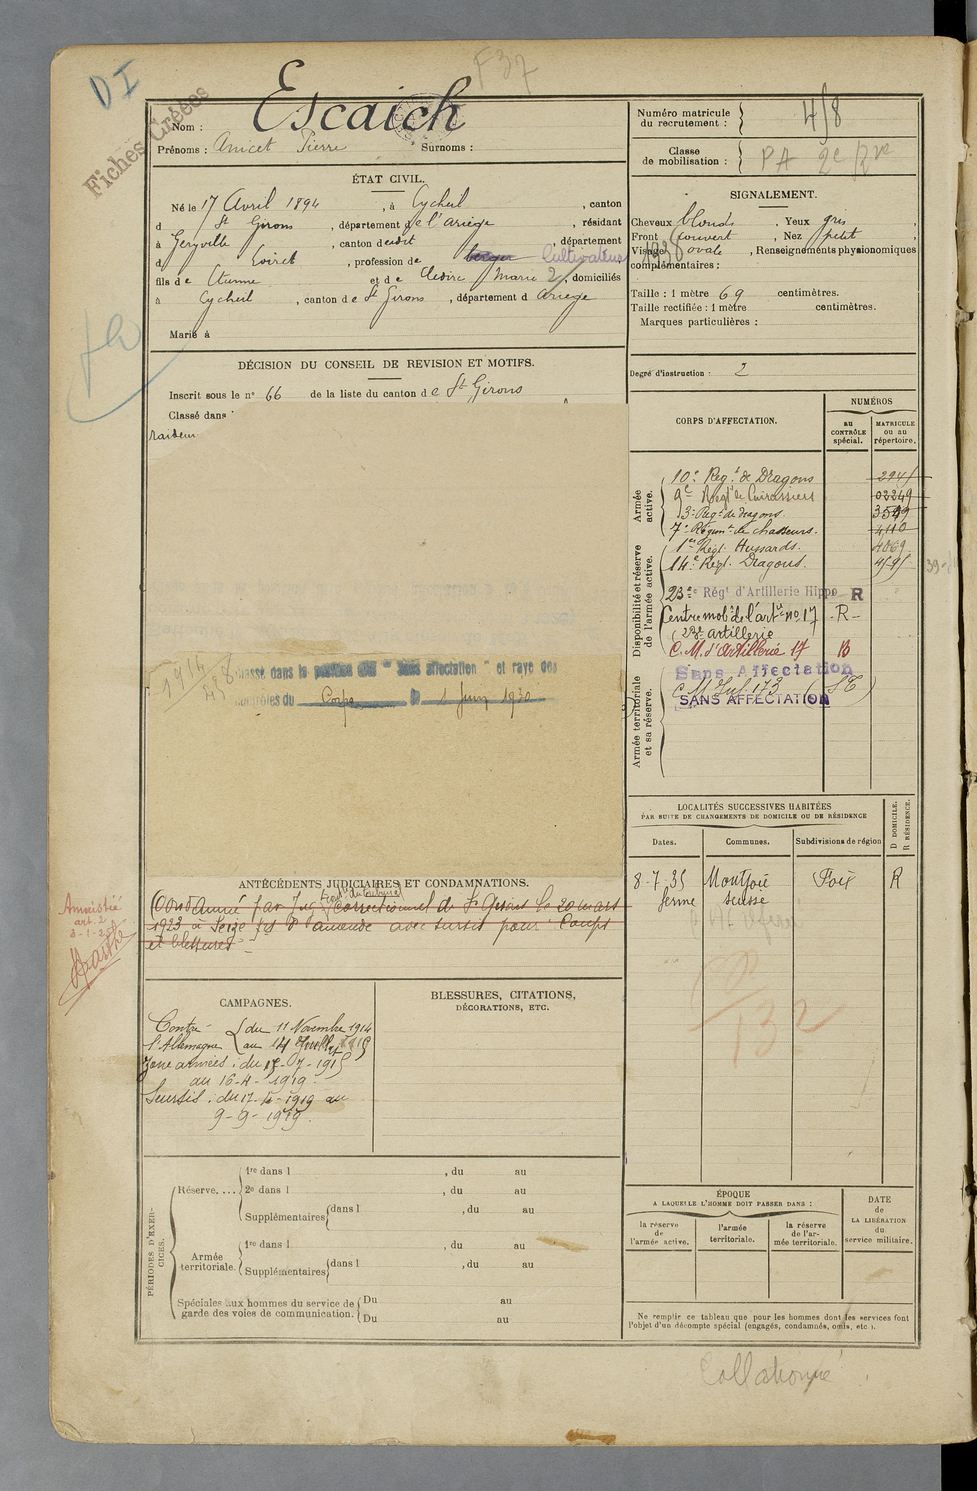 DI
F37
Fiches Créées
Nom : Escaich
Prénoms : Anicet Pierre Surnoms :
Numéro matricule
du recrutement : 418
Classe
de mobilisation : PA 2e
ÉTAT CIVIL.
Né le 17 Avril 1894, à Eycheil, canton
d St Girons, département de l'ariège, résidant
à Geryville, canton de udit, département
d Loiret, profession de berger Cultivateur
fils de Etienne et de Marie, domiciliés
à Eycheil, canton de St Girons, département d Ariège
Marié à
SIGNALEMENT.
Cheveux blonds, Yeux gris,
Front couvert, Nez petit,
Visage ovale, Renseignements physionomiques
complémentaires :
1938
Taille : 1 mètre 69 centimètres.
Taille rectifiée : 1 mètre centimètres.
Marques particulières :
Degré d'instruction : 2
DÉCISION DU CONSEIL DE REVISION ET MOTIFS.
Inscrit sous le n° 66 de la liste du canton de St Girons
Classé dans
1914
classé dans la position dite "Sans affectation" et rayé des
contrôles du Corps le 1 Juin 1930
CORPS D'AFFECTATION.
NUMÉROS
AU
CONTRÔLE
spécial.
MATRICULE
ou au
répertoire.
Armée
active.
10e Regt de Dragons 2941
9e Regt de Cuirassiers 02249
3e Regt de dragons. 3549
7e Régimt de chasseurs. 4110
Disponibilité et réserve
de l'armée active.
1er Régt. Hussards. 4069
14e Régt. Dragons.
23e Régt d'Artillerie Hippo R
Centre mobre de l'artie no 17 -R-
(23e artillerie
C. M. d'Artillerie 17 R
Armée territoriale
et sa réserve.
Sans Affectation
C. M. Inf. 173
SANS AFFECTATION
LOCALITÉS SUCCESSIVES HABITÉES
PAR SUITE DE CHANGEMENTS DE DOMICILE OU DE RÉSIDENCE
Dates. Communes. Subdivisions de région
D DOMICILE.
R RÉSIDENCE.
8-7-35 Montjoie Foix R
ferme
32
ANTÉCÉDENTS JUDICIAIRES ET CONDAMNATIONS.
Condamné par Jugt du tribunal Correctionnel de St Girons le 20 mars
1923 à Seize frs d'amende avec sursis pour Coups
et blessures
Amnistié
art. 2
3-1-25
CAMPAGNES.
Contre du 11 Novembre 1914
l'Allemagne au 14 Juillet 1915
Zone armées : du 15-07-1915
au 16-4-1919.
Sursis : du 17-4-1919 au
9-9-1919.
BLESSURES, CITATIONS,
DÉCORATIONS, ETC.
PÉRIODES D'EXER-
CICES.
Réserve....
1re dans l , du au
2e dans l , du au
Supplémentaires dans l , du au
Armée
territoriale.
1re dans l , du au
Supplémentaires dans l , du au
Spéciales aux hommes du service de
garde des voies de communication.
Du au
Du au
ÉPOQUE
A LAQUELLE L'HOMME DOIT PASSER DANS :
la réserve
de
l'armée active.
l'armée
territoriale.
la réserve
de l'ar-
mée territoriale.
DATE
de
LA LIBÉRATION
du
service militaire.
Ne remplir ce tableau que pour les hommes dont les services font
l'objet d'un décompte spécial (engagés, condamnés, omis, etc.).
Collationné